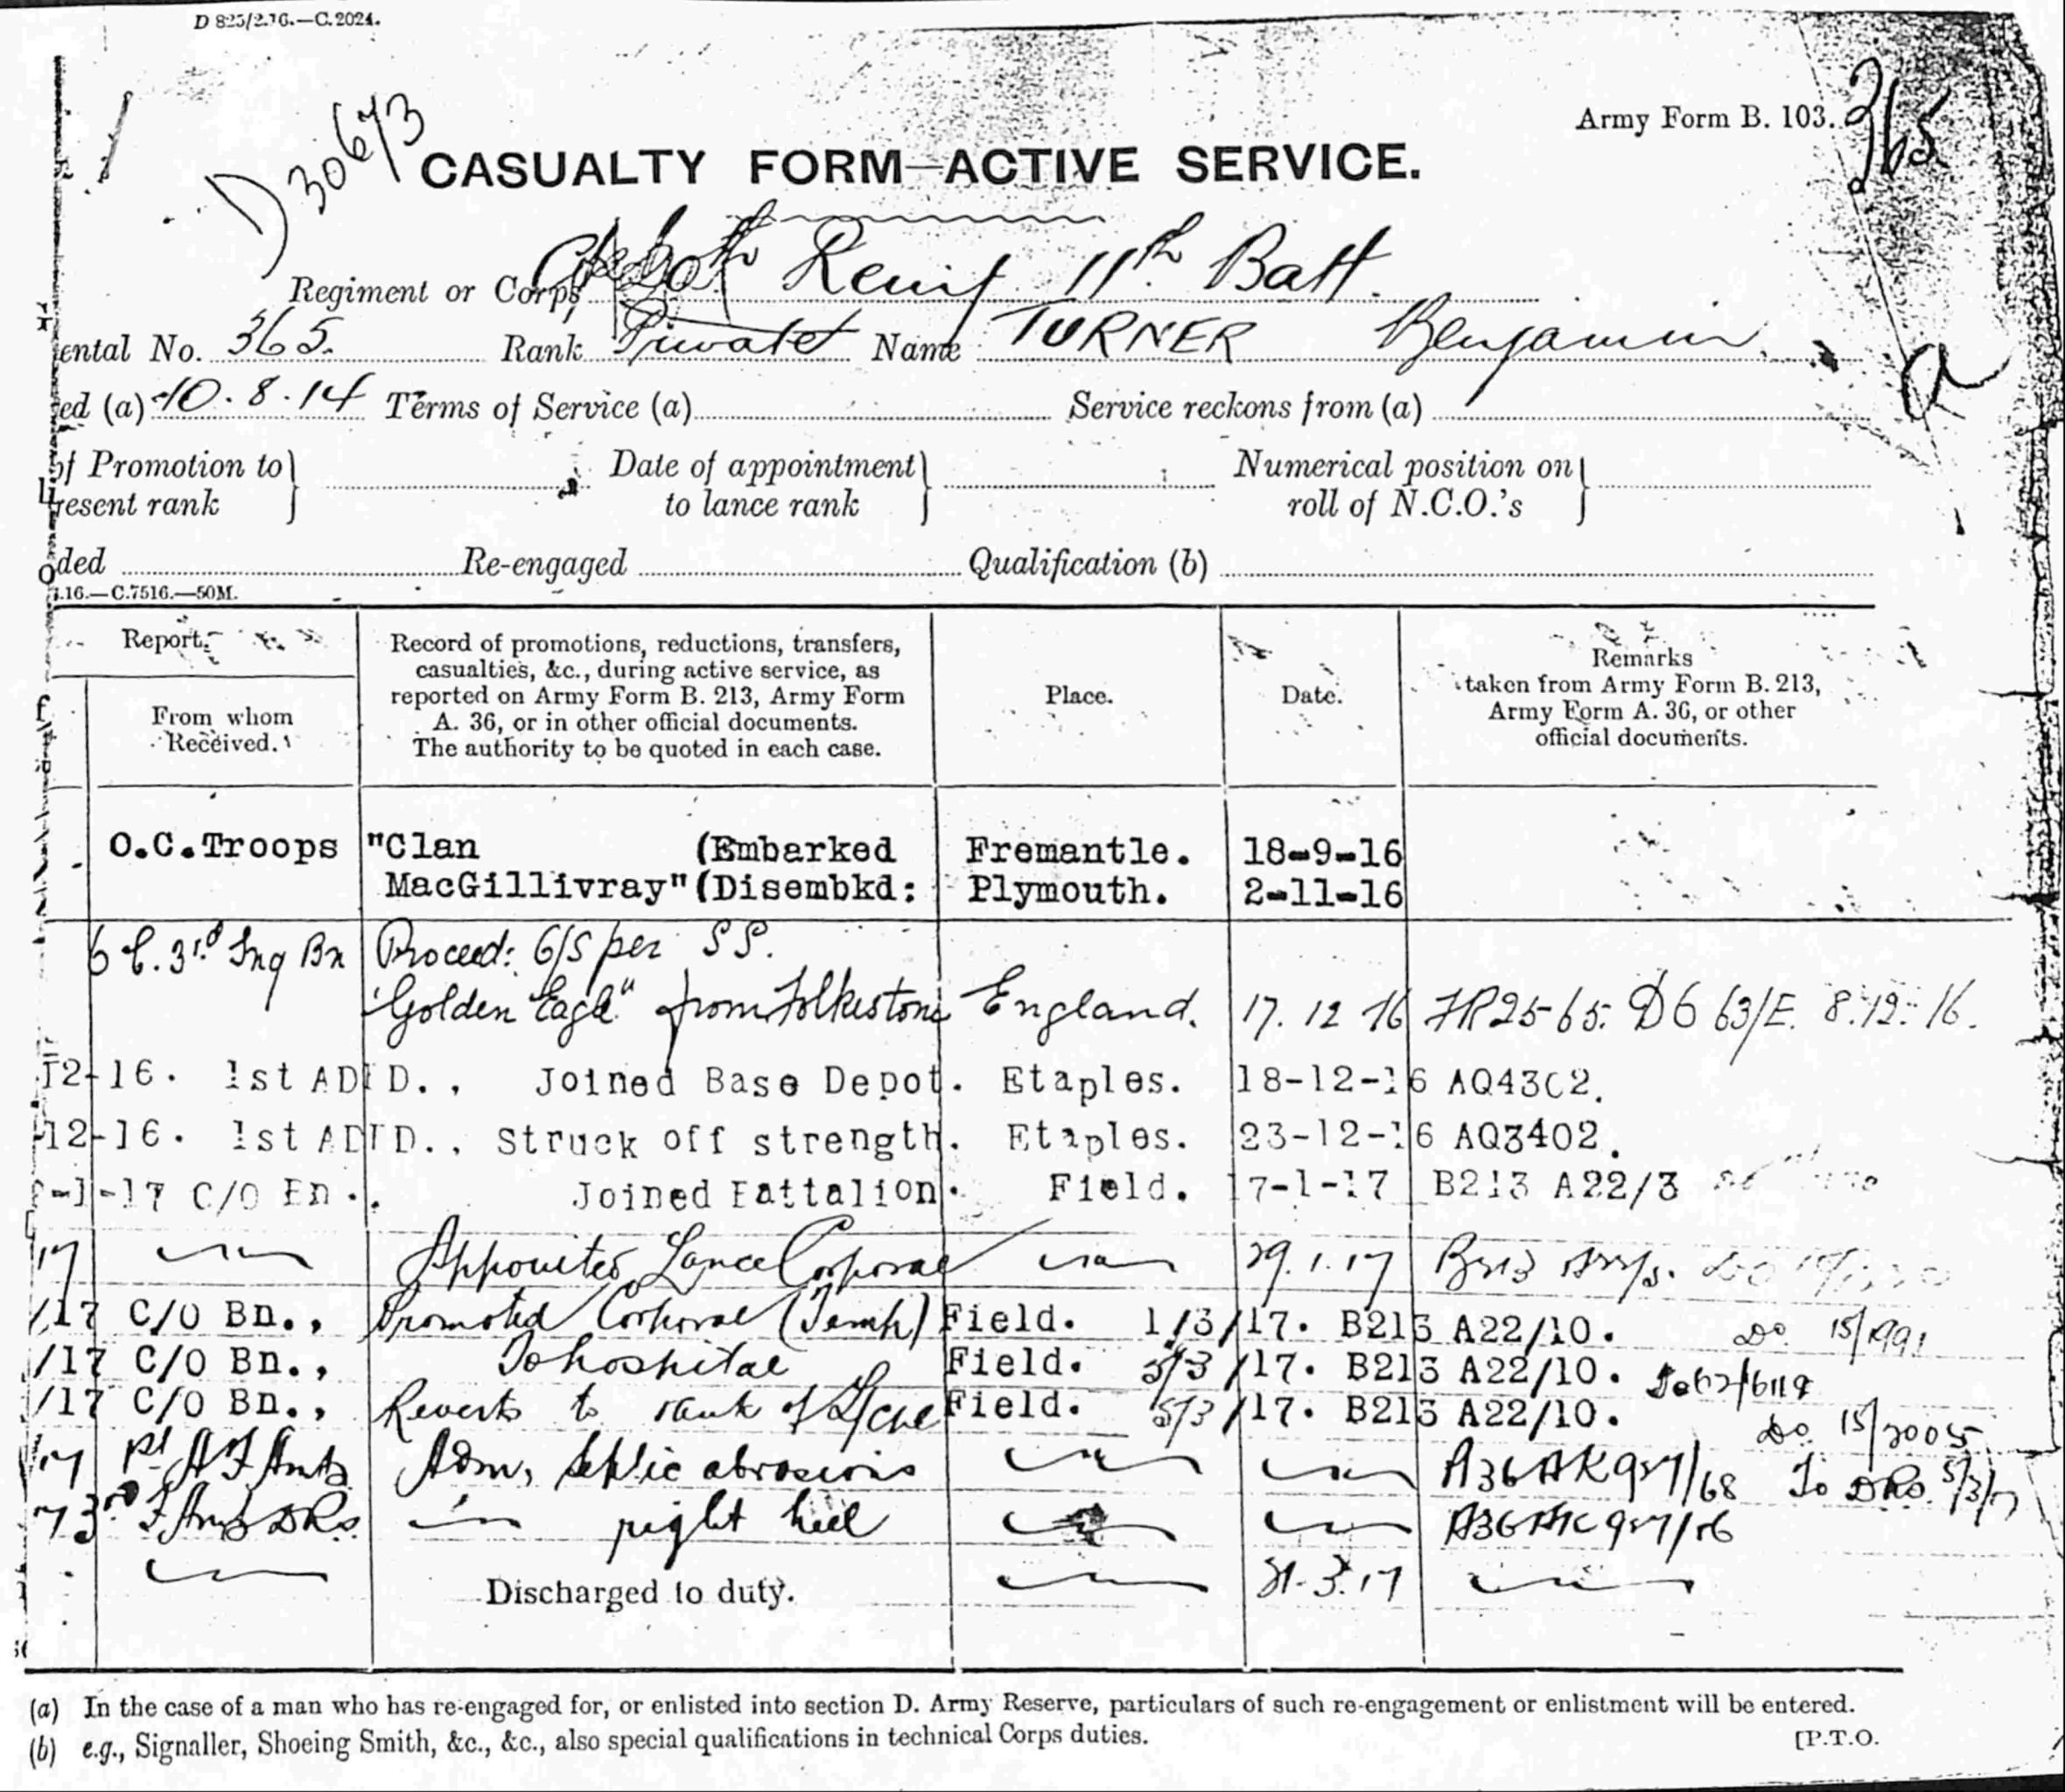 D 825/2.16.—C.2024.
Army Form B. 103.
365
D 30673
CASUALTY FORM—ACTIVE SERVICE.
Regiment or Corps Reinf 11th Batt.
ental No. 365. Rank Private Name TURNER Benjamin
ed (a) 10.8.14 Terms of Service (a) Service reckons from (a)
a
of Promotion to resent rank } Date of appointment to lance rank } Numerical position on roll of N.C.O.'s }
ded Re-engaged Qualification (b)
.16.—C.7516.—50M.
Report.
From whom Received.
Record of promotions, reductions, transfers, casualties, &c., during active service, as reported on Army Form B. 213, Army Form A. 36, or in other official documents. The authority to be quoted in each case.
Place.
Date.
Remarks taken from Army Form B. 213, Army Form A. 36, or other official documents.
O.C.Troops "Clan (Embarked Fremantle. 18-9-16
MacGillivray" (Disembkd: Plymouth. 2-11-16
3rd Tng Bn Proceed: O/S per SS.
"Golden Eagle" from Folkestone England. 17.12 16 D6 63/E. 8.12.16.
12-16. 1st ADBD., Joined Base Depot. Etaples. 18-12-16 AQ4302.
12-16. 1st ADBD., Struck off strength. Etaples. 23-12-16 AQ3402.
-1-17 C/O Bn., Joined Battalion. Field. 7-1-17 B213 A22/3
17 Appointed Lance Corporal 29.1.17 B213
/17 C/O Bn., Promoted Corporal (Temp) Field. 1/3/17. B213 A22/10. Do 15/1991
/17 C/O Bn., To hospital Field. 5/3/17. B213 A22/10.
/17 C/O Bn., Reverts to rank of L/Cpl Field. 5/3/17. B213 A22/10. Do 15/2005
/17 1st A F Amb Adm, septic abrasions A36 AK987/68 To DRS 5/3/17
17 3rd F Amb DRS. right heel
Discharged to duty. 31.3.17
(a) In the case of a man who has re-engaged for, or enlisted into section D. Army Reserve, particulars of such re-engagement or enlistment will be entered.
(b) e.g., Signaller, Shoeing Smith, &c., &c., also special qualifications in technical Corps duties.
[P.T.O.